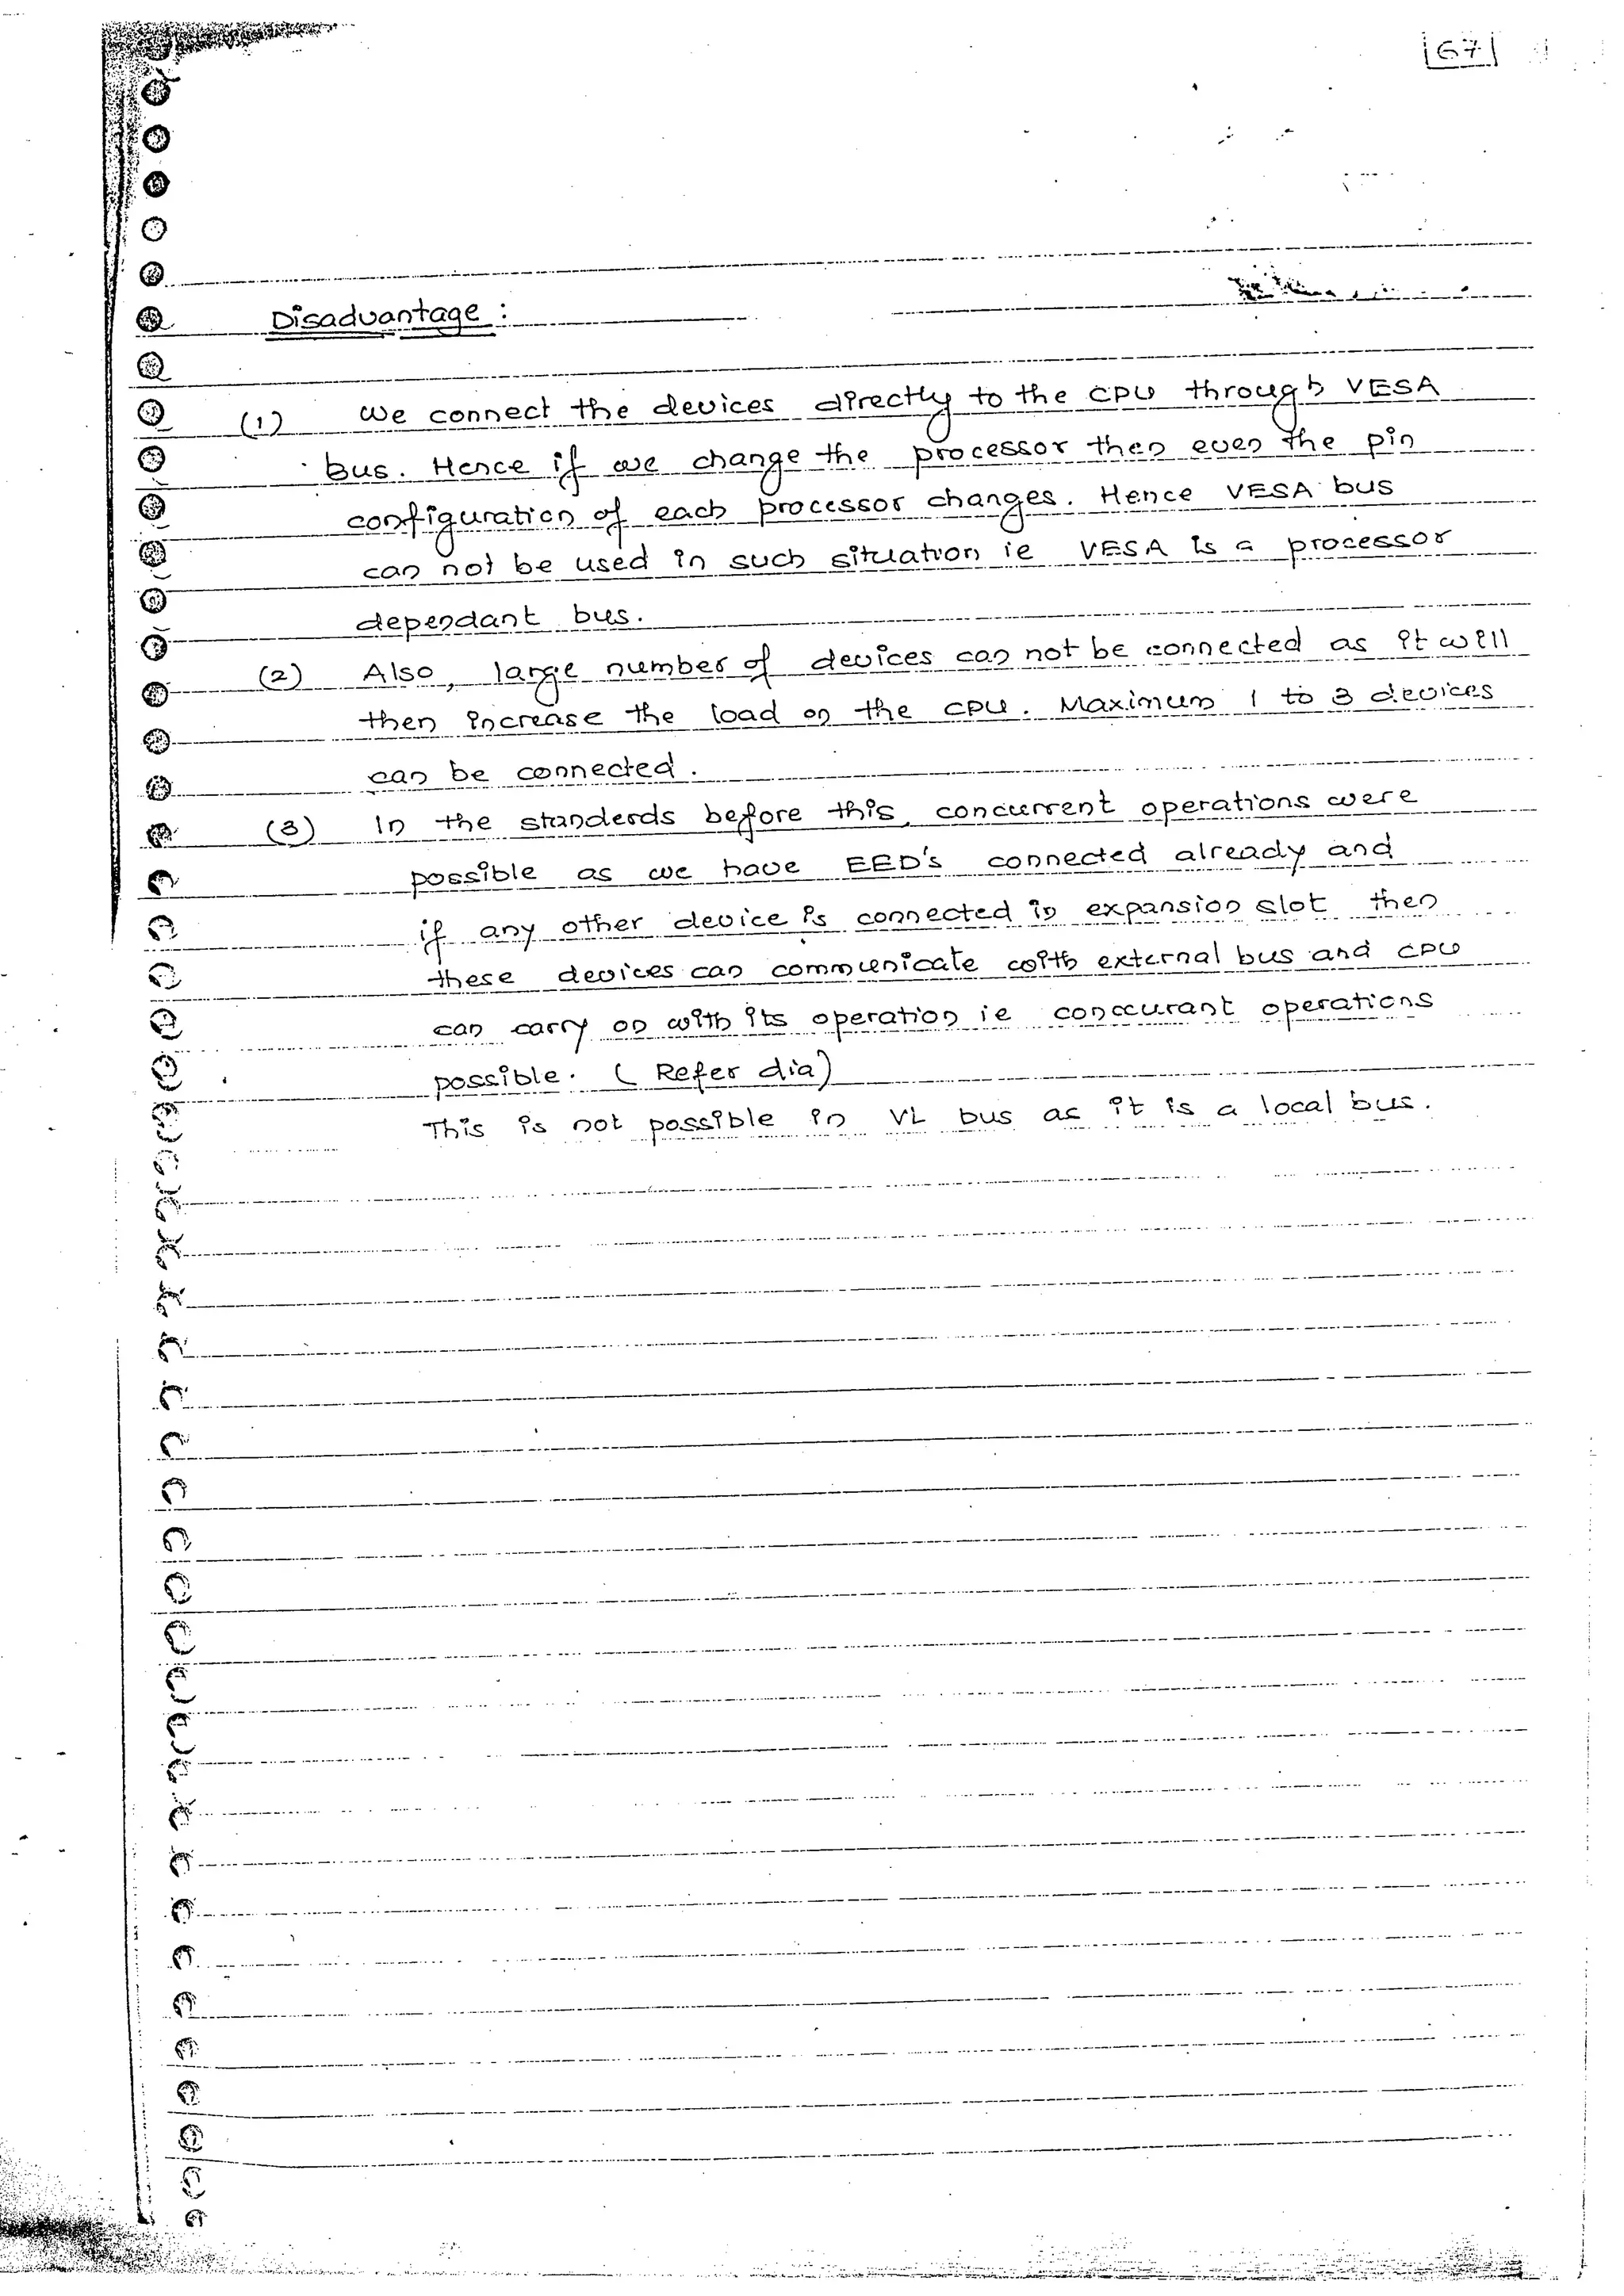 67
Disadvantage :
(1) We connect the devices directly to the CPU through VESA
bus. Hence if we change the processor then even the pin
configuration of each processor changes. Hence VESA bus
can not be used in such situation ie VESA is a processor
dependant bus.
(2) Also, large number of devices can not be connected as it will
then increase the load on the CPU. Maximum 1 to 3 devices
can be connected.
(3) In the standerds before this, concurrent operations were
possible as we have EED's connected already and
if any other device is connected in expansion slot then
these devices can communicate with external bus and CPU
can carry on with its operation ie conccurant operations
possible. (Refer dia)
This is not possible in VL bus as it is a local bus.